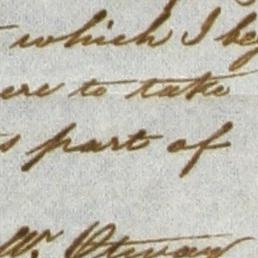 which I beg
ere to take
s part of
Mr. Otway